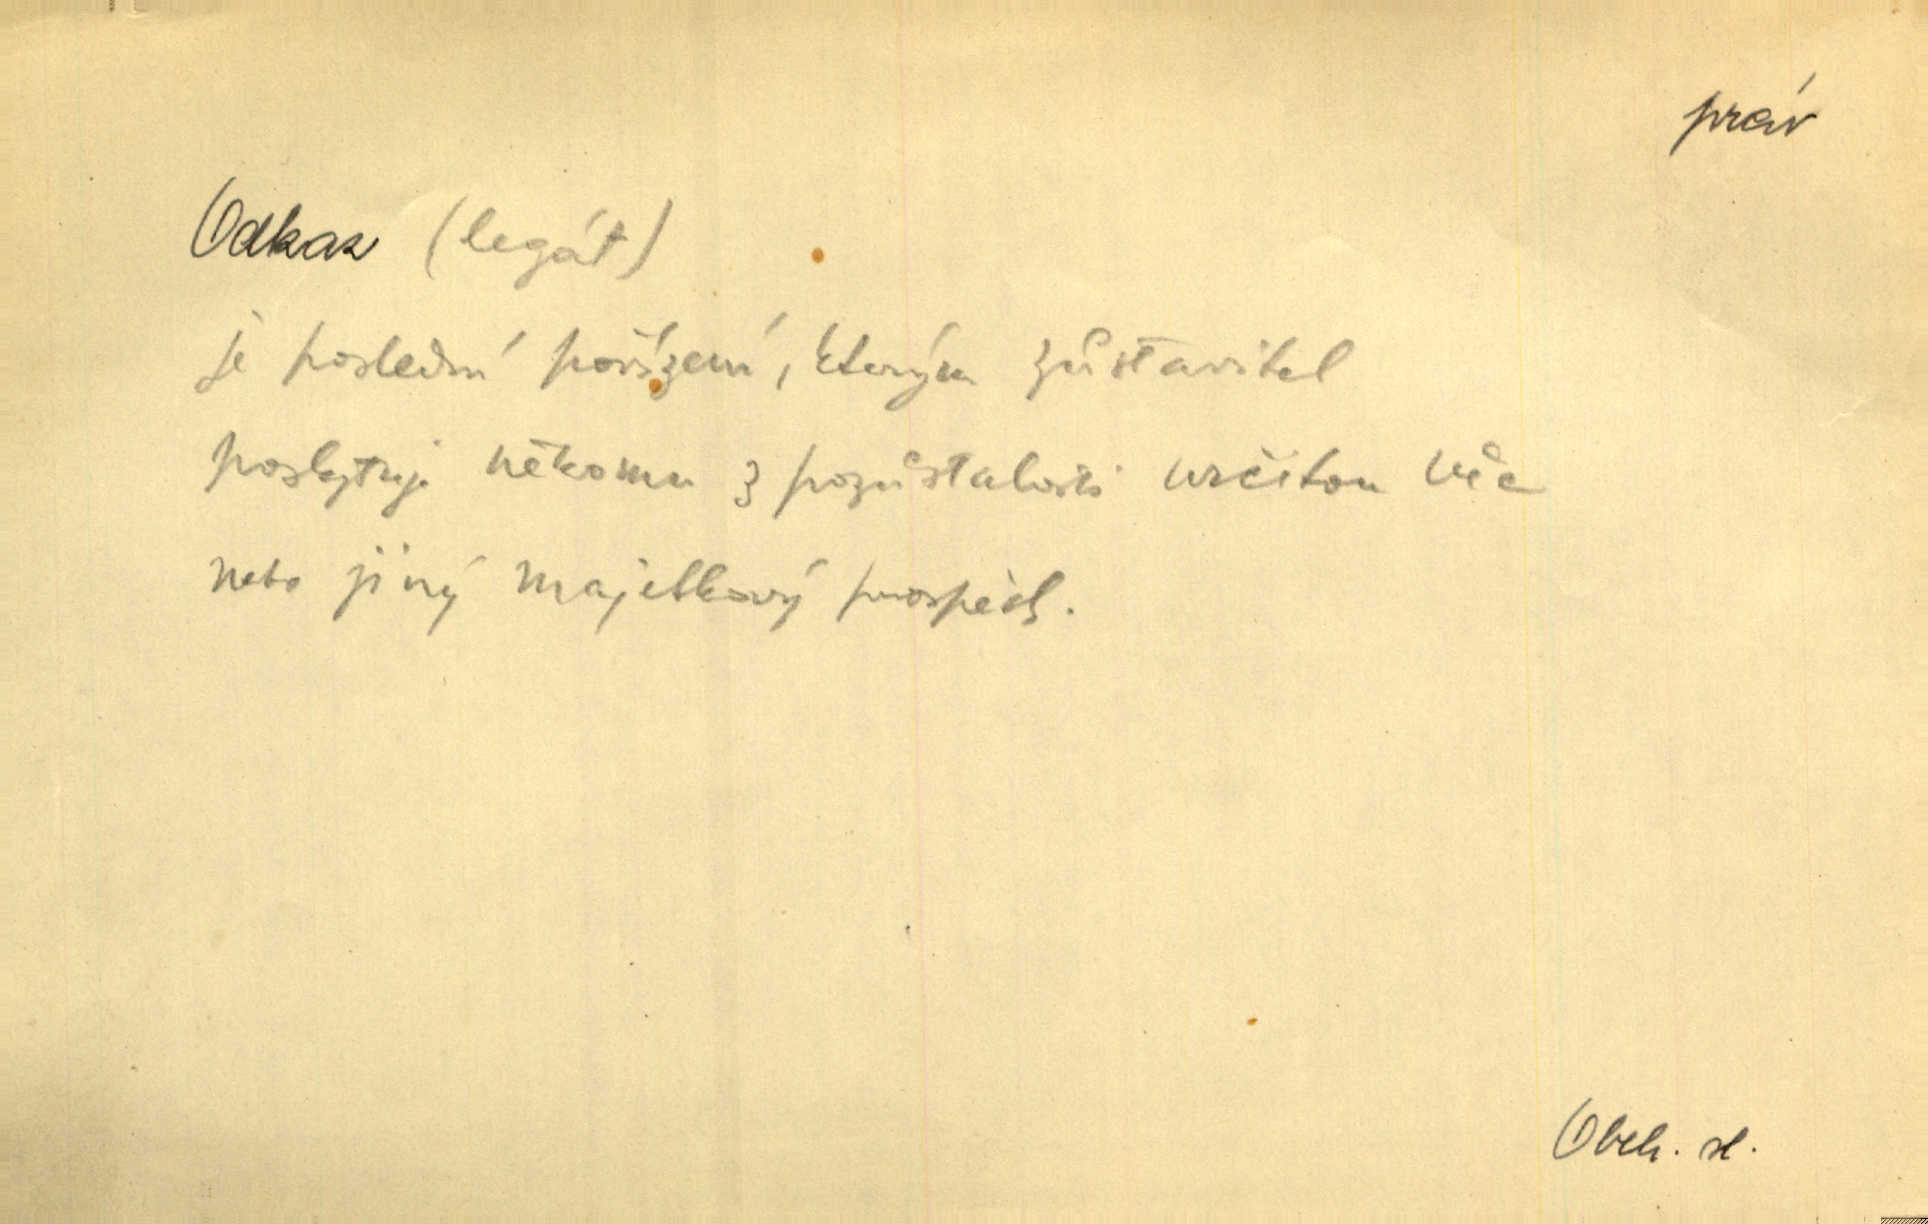 práv
Odkaz (legát)
je poslední pořízení, kterým zůstavitel
poskytuje někomu z pozůstalosti určitou věc
nebo jiný majetkový prospěch.
Obch. sl.